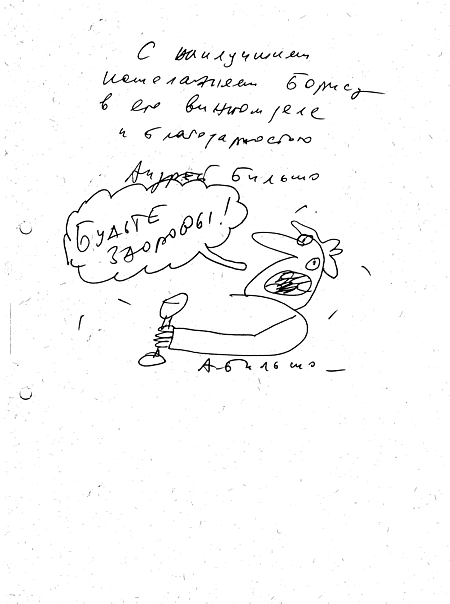 С наилучшими
пожеланием Борису
в его винном деле
и благодарностью
Андрей Бильжо
БУДЬТЕ
ЗДОРОВЫ!
А. Бильжо